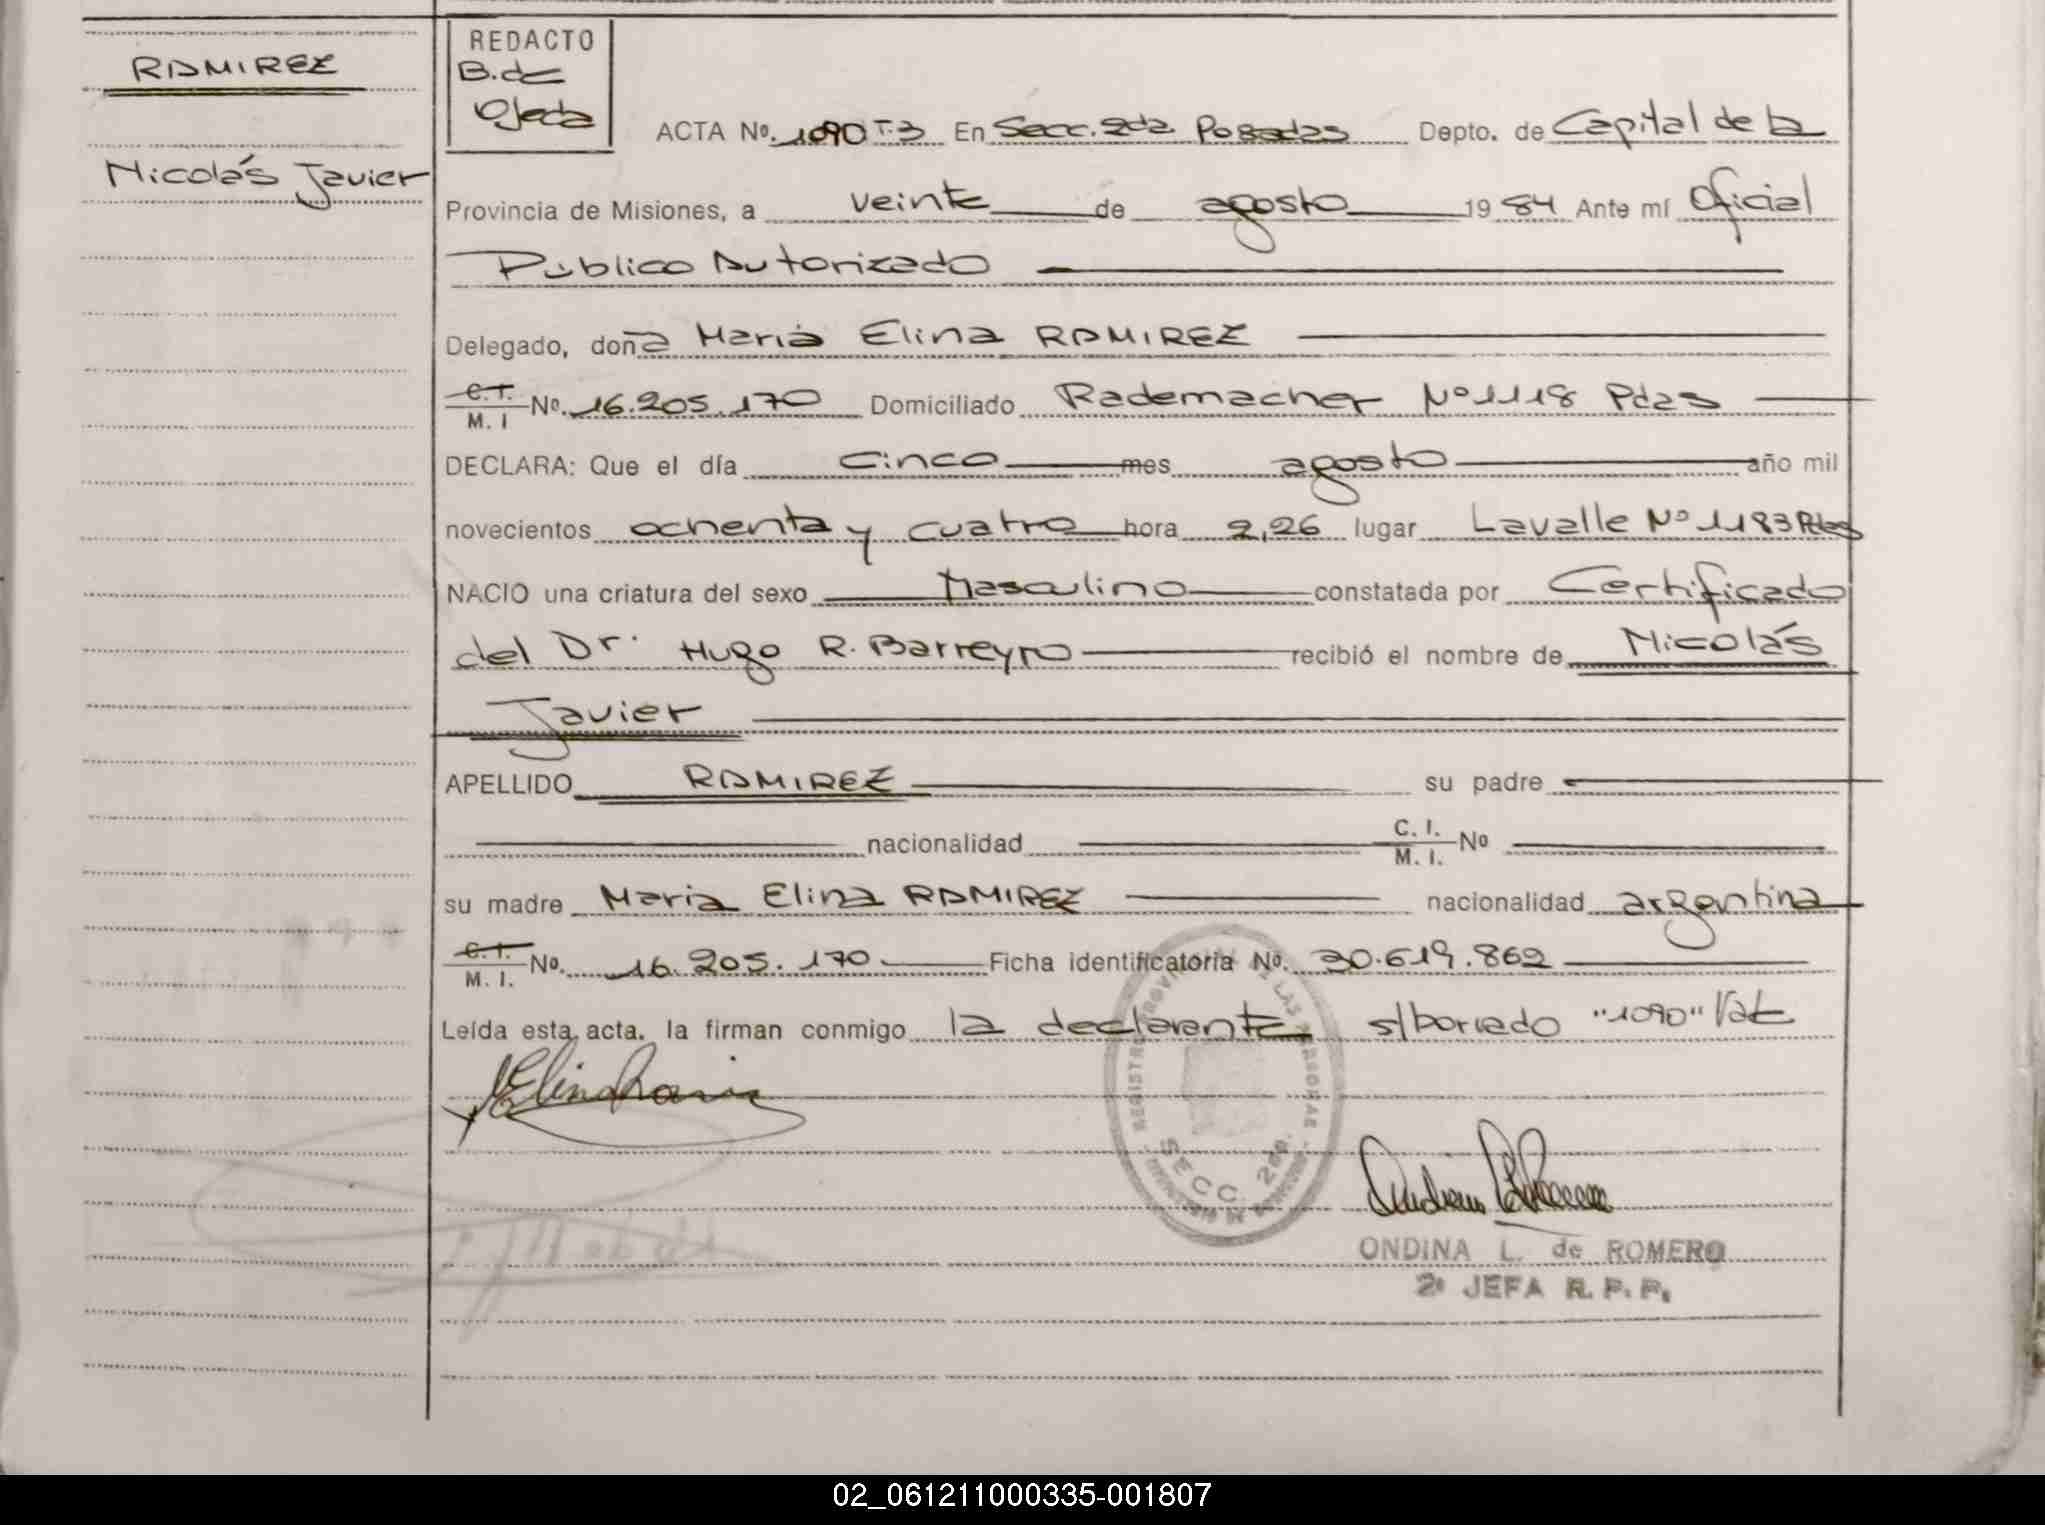 RAMIREZ
Nicolás Javier
REDACTO
B. de
Ojeda
ACTA Nº. 1090 T-3 En Secc. 2da Posadas Depto. de Capital de la
Provincia de Misiones, a veinte de agosto 19 84 Ante mí Oficial
Público Autorizado
Delegado, doña Maria Elina RAMIREZ
C.I. / M.I Nº. 16.205.170 Domiciliado Rademacher Nº 1118 Pdas
DECLARA: Que el día cinco mes agosto año mil
novecientos ochenta y cuatro hora 2,26 lugar Lavalle Nº 1183 Pdas
NACIO una criatura del sexo Masculino constatada por Certificado
del Dr. Hugo R. Barreyro recibió el nombre de Nicolás
Javier
APELLIDO RAMIREZ su padre
nacionalidad C.I. / M.I. Nº
su madre Maria Elina RAMIREZ nacionalidad argentina
C.I. / M.I. Nº. 16.205.170 Ficha identificatoria Nº. 30.619.862
Leída esta acta. la firman conmigo la declarante s/borrado "1090" Vale
REGISTRO PROVINCIAL DE LAS PERSONAS
SECC. 2da.
ONDINA L. de ROMERO
2ª JEFA R. P. P.
02_061211000335-001807